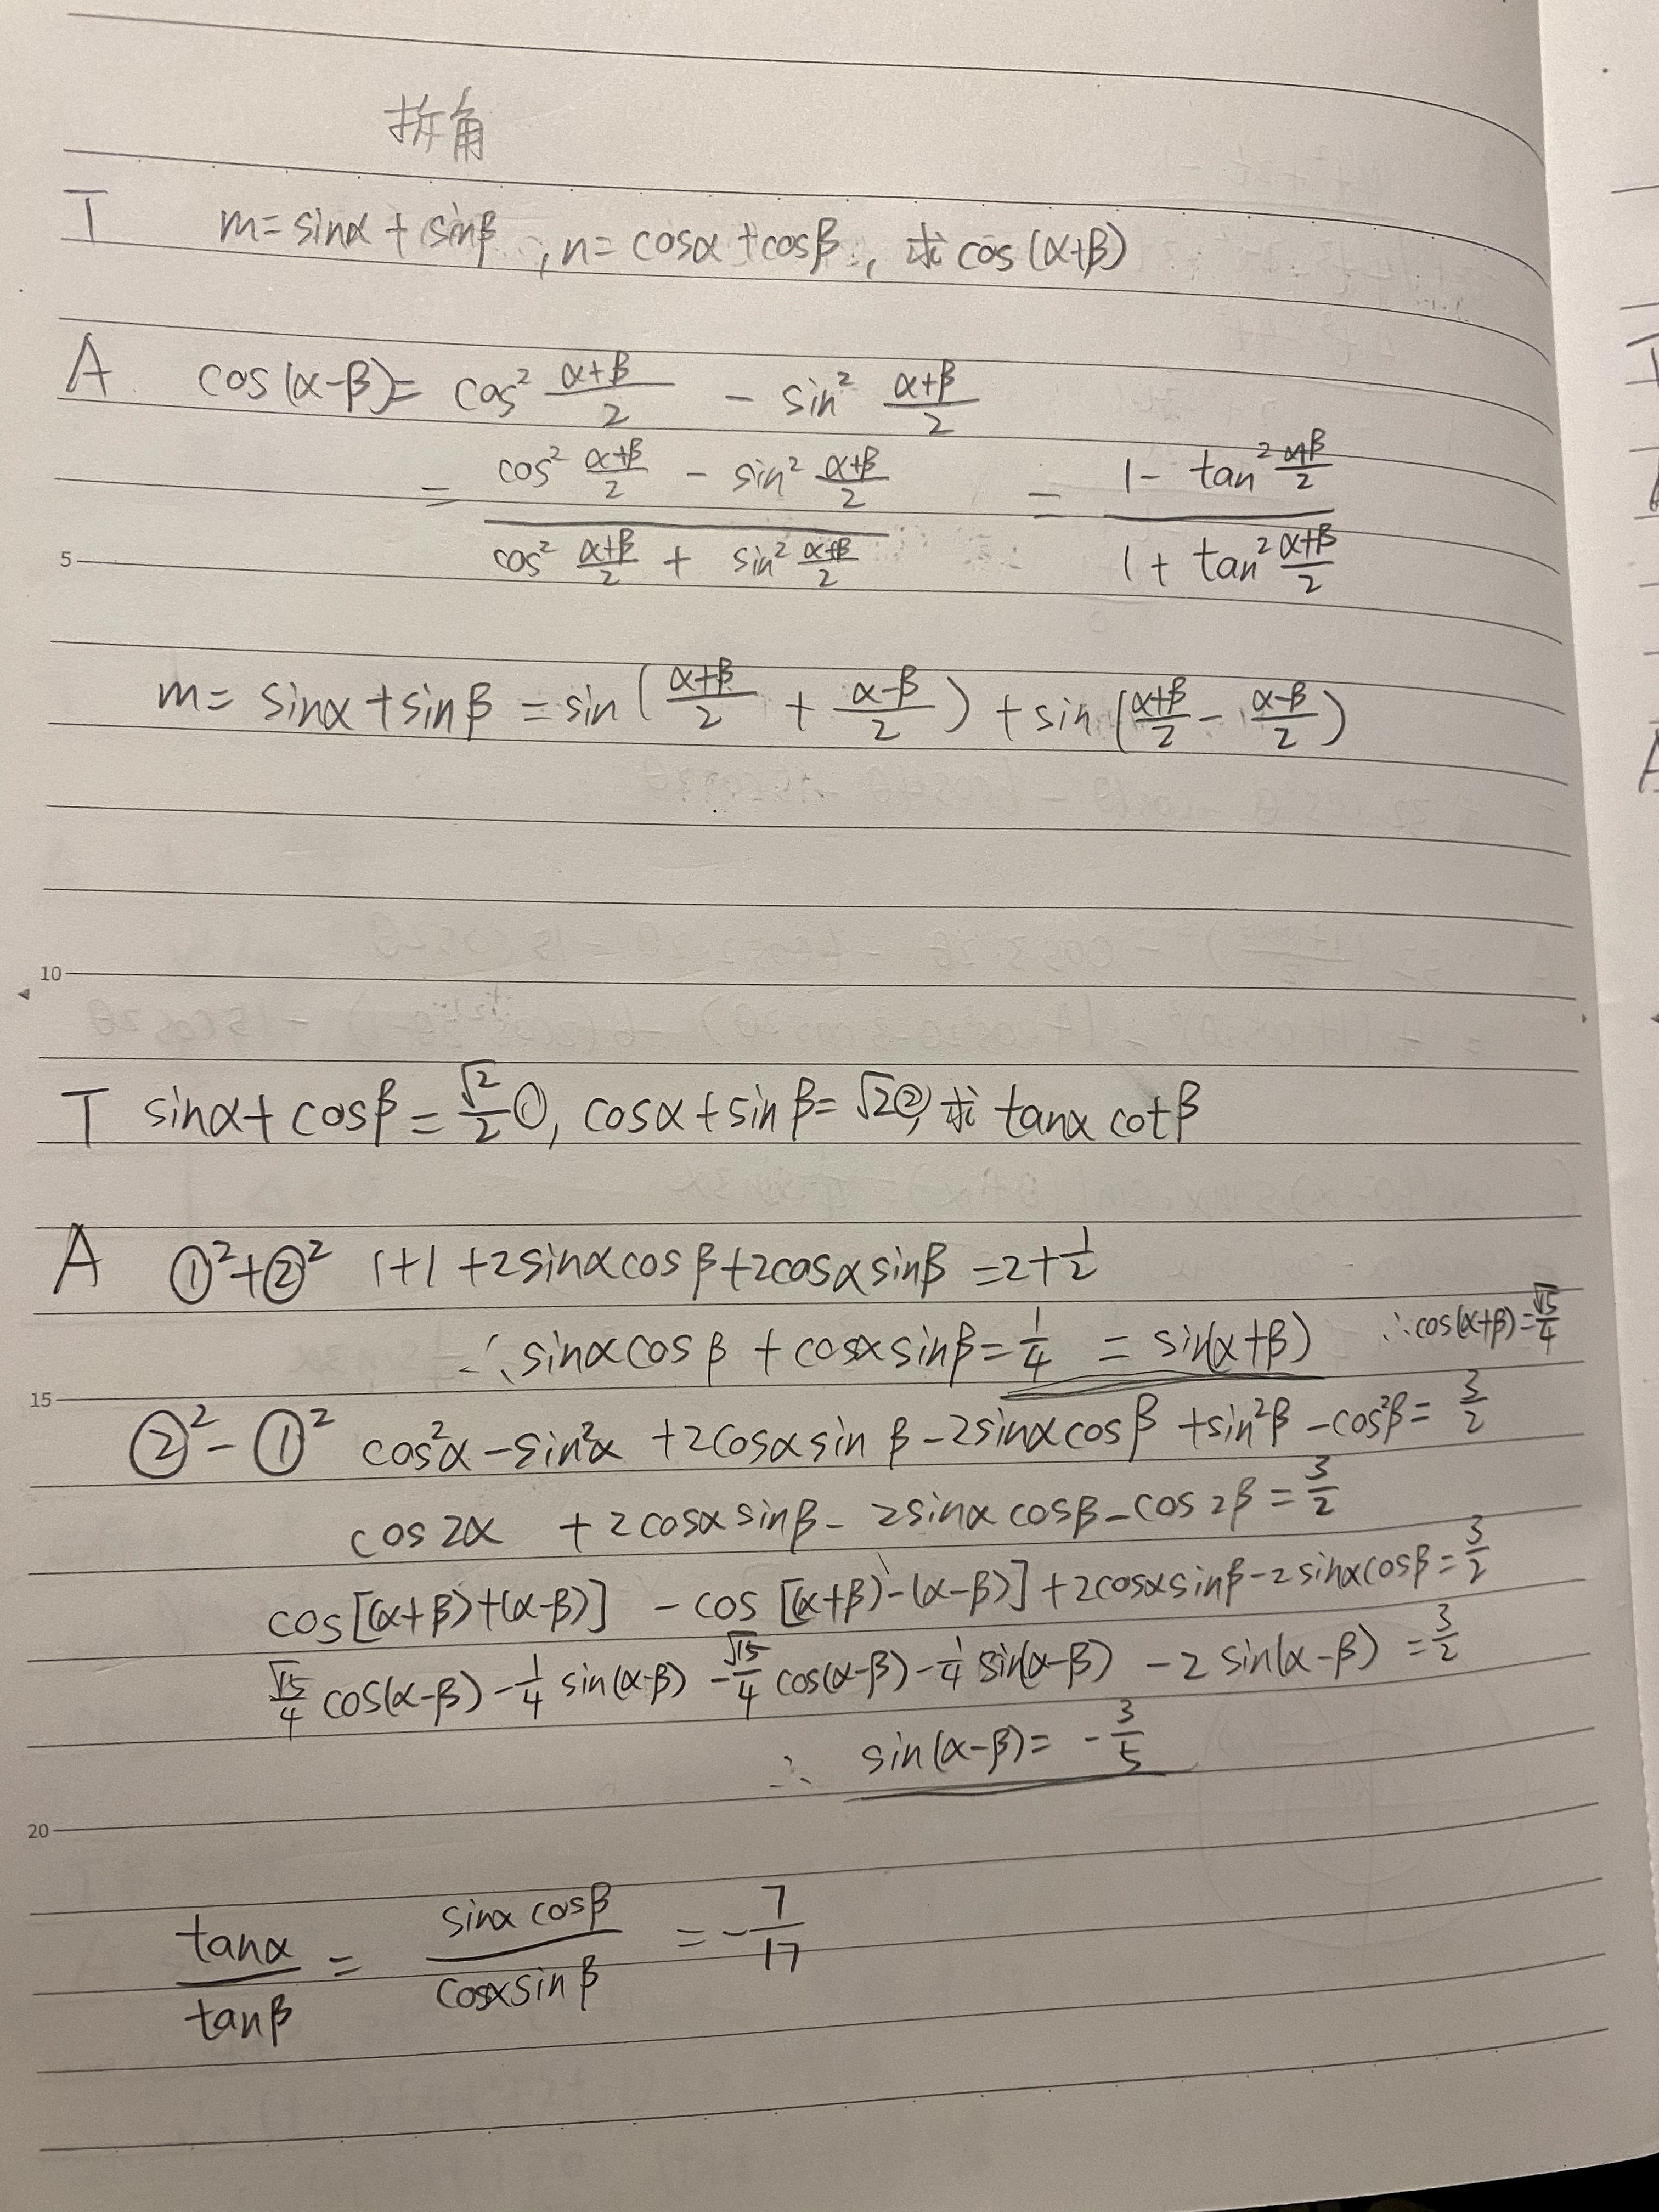 拆角
T m=sinα+sinβ, n=cosα+cosβ, 求cos(α+β)
A cos(α-β)= cos² (α+β)/2 - sin² (α+β)/2
= (cos² (α+β)/2 - sin² (α+β)/2)/(cos² (α+β)/2 + sin² (α+β)/2) = (1- tan² (α+β)/2)/(1+ tan² (α+β)/2)
5
m= sinα+sinβ =sin((α+β)/2 + (α-β)/2) + sin((α+β)/2 - (α-β)/2)
10
T sinα+cosβ=√2/2①, cosα+sinβ=√2②, 求 tanα cotβ
A ①²+②² 1+1+2sinαcosβ+2cosαsinβ=2+1/2
∴sinαcosβ+cosαsinβ=1/4 = sin(α+β) ∴cos(α+β)=√15/4
15
②²-①² cos²α-sin²α+2cosαsinβ-2sinαcosβ+sin²β-cos²β=3/2
cos2α+2cosαsinβ-2sinαcosβ-cos2β=3/2
cos[(α+β)+(α-β)] - cos[(α+β)-(α-β)]+2cosαsinβ-2sinαcosβ=3/2
√15/4 cos(α-β)-1/4 sin(α-β)-√15/4 cos(α-β)-1/4 sin(α-β)-2sin(α-β)=3/2
∴ sin(α-β)= -3/5
20
tanα/tanβ = sinαcosβ/cosαsinβ = -7/17